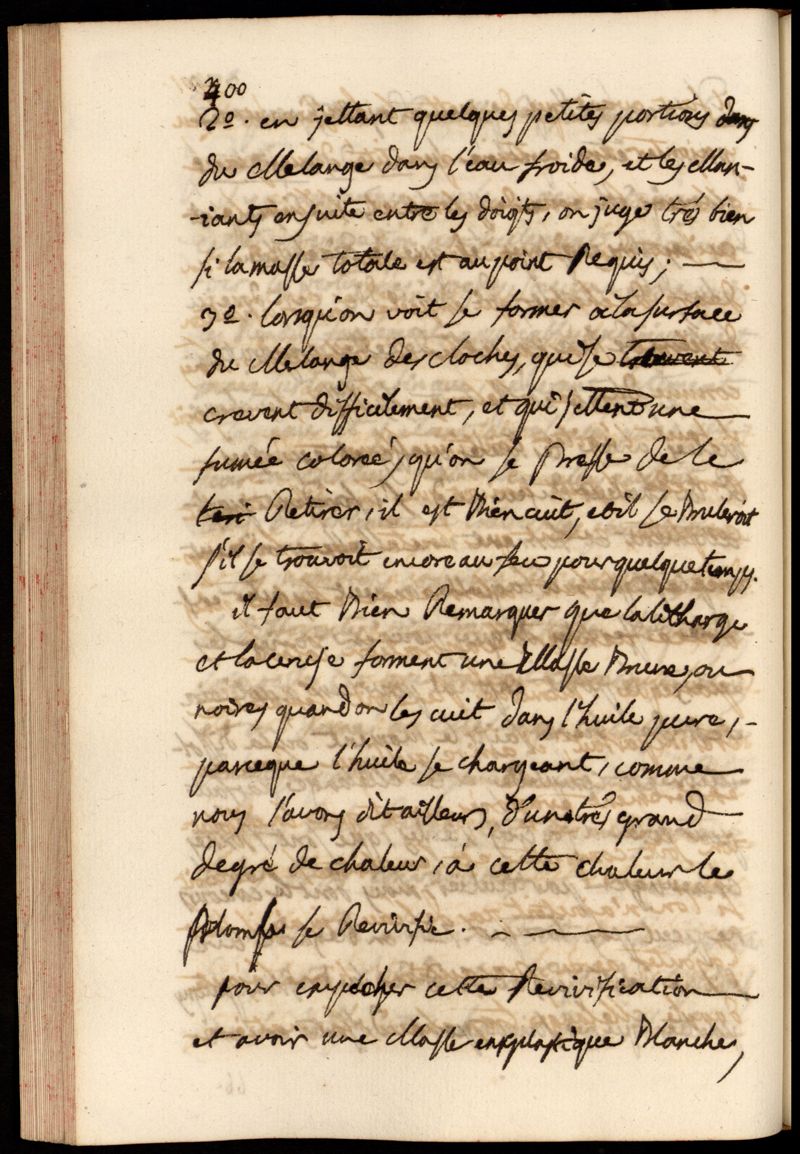 400
2º. en jettant quelques petites portions dans
du Melange dans l'eau froide, et les Man-
-iants ensuite entre les doigts, on juge trés bien
si la masse totale est au point Requis; —
3º. lorsqu'on voit se former a la surface
du Melange des cloches, qui se trouvent
crevent difficilement, et qui jettent une
fumée colorée, qu'on se Presse de le
Retirer, il est Bien cuit, et il se Bruleroit
s'il se trouvoit encore au feu pour quelque temps.
il faut Bien Remarquer que la litharge
et la ceruse forment une Masse Brune, ou
noires quand on les cuit dans l'huile pure, -
parceque l'huile se chargeant, comme
nous l'avons dit ailleurs, d'un trés grand
degré de chaleur, a cette chaleur le
Plomb se Revivifie. —
pour empecher cette Revivification
et avoir une Masse emplastique Blanche,